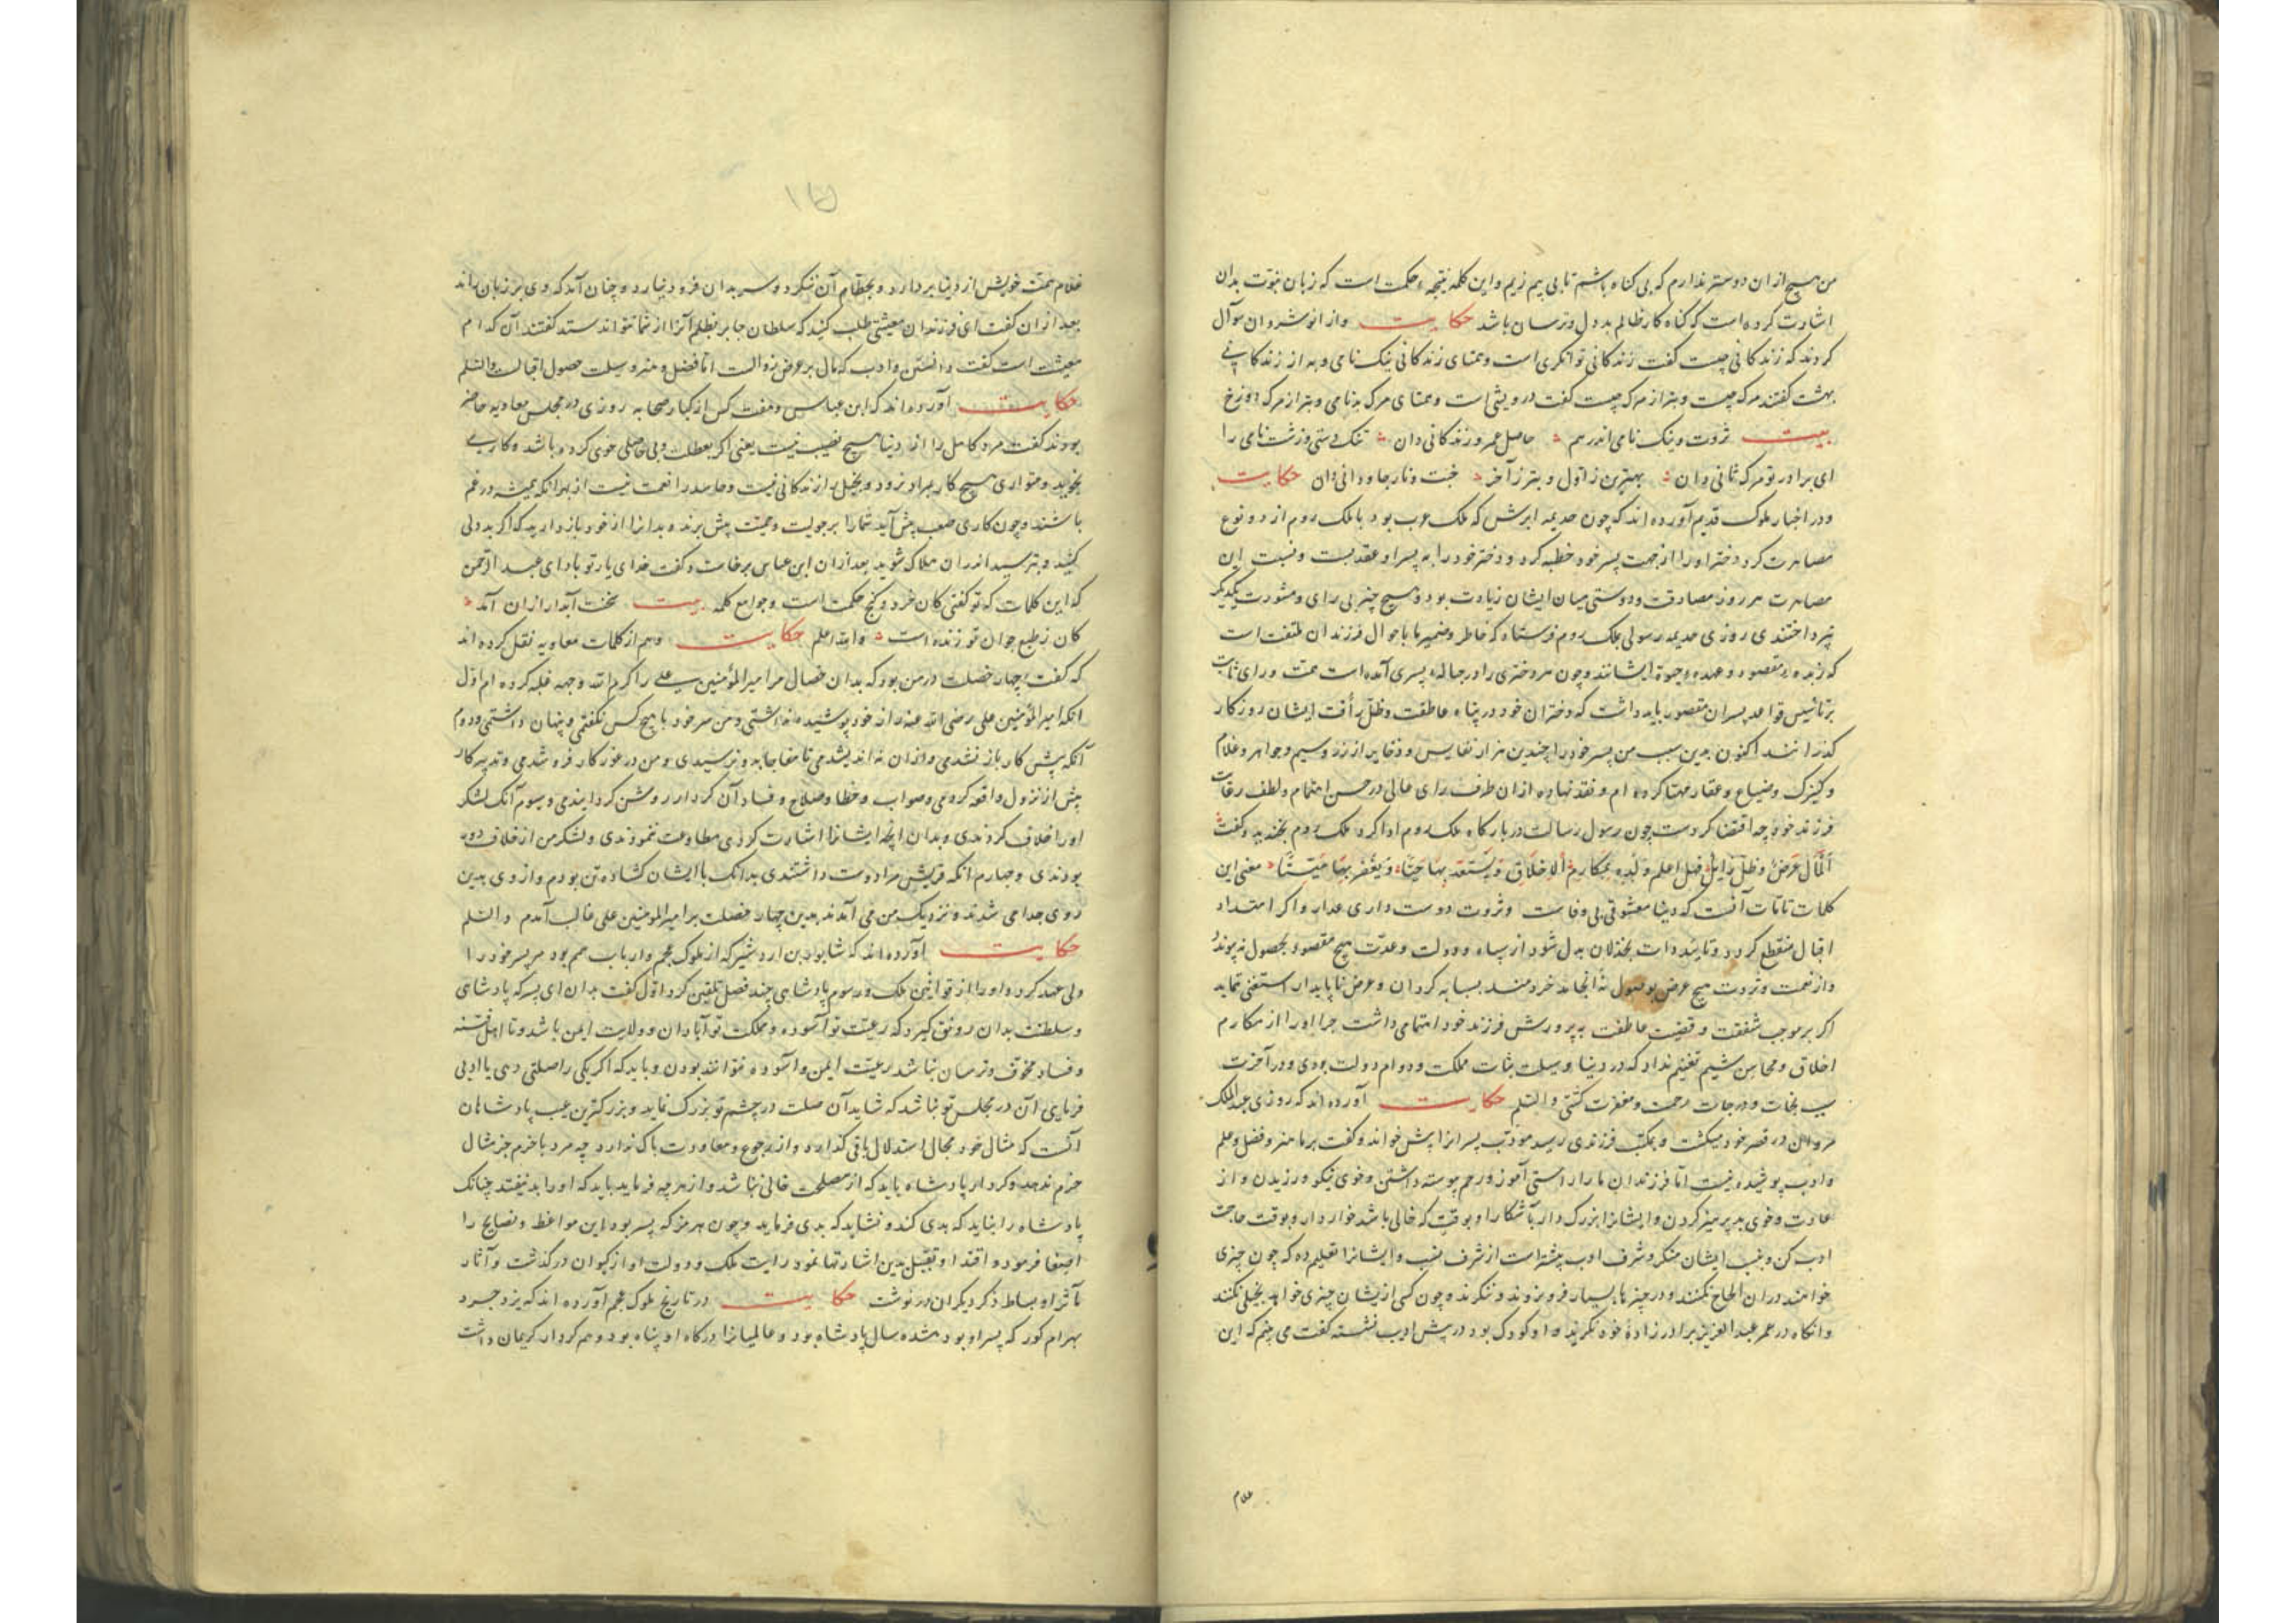 من هیچ از ان دوستر ندارم که بی کناه باشم تا بی بیم زیم و این کلمه نتیجهٔ حکمت است که زبان نبوت بدان
اشارت کرده است که کناه کار ظالم بددل و ترسان باشد حکایت و از انوشروان سوآل
کردند که زندکانی چیست کفت زندکانی توانکری است و همتای زندکانی نیک نامی و به از زندکانی
بهشت کفتند مرک چیست و بتر از مرک چیست کفت درویشی است و همتای مرک بدنامی و بتر از مرک دوزخ
بیت ثروت و نیک نامی اندر هم حاصل عمر و زندکانی دان تنک دستی و زشت نامی را
ای برادر تو مرک ثانی دان بهترین ز اول و بتر ز آخر جنت و نار جاودانی دان حکایت
و در اخبار ملوک قدیم آورده اند که چون جدیمه ابرش که ملک عرب بود با ملک روم از دو نوع
مصاهرت کرد دختر او را از جهت پسر خود خطبه کرد و دختر خود را به پسر او عقد بست و نسبت این
مصاهرت هر روز مصادقت و دوستی میان ایشان زیادت بود و هیچ چیز بی رای و مشورت یکدیکر
نپرداختندی روزی جدیمه رسولی بملک روم فرستاد که خاطر و ضمیر ما باحوال فرزندان ملتفت است
که زبدهٔ مقصود و عمدهٔ حیوة ایشانند و چون هر دختری را در حبالهٔ پسری آمده است همت و رای ثابت
بر تاسیس قواعد پسران مقصور باید داشت که دختران خود در پناه عاطفت و ظل رأفت ایشان روزکار
کذرانند اکنون بدین سبب من پسر خود را چندین هزار نفایس و ذخایر از زر و سیم و جواهر و غلام
و کنیزک و ضیاع و عقار مهیا کرده ام و نقد نهاده از ان طرف رای عالی در حسن اهتمام و لطف رقابت
فرزند خود چه اقتضا کردست چون رسول رسالت در بارکاه ملک روم ادا کرد ملک روم بخندید و کفت
اَلمَال عَرَضٌ وظلّ زایلٌ قل اعلم ولده بمکارم الاخلاق و یستعد بها حیّاً و یغفر بها میّتاً معنی این
کلمات تامات آنست که دنیا معشوقی بی وفاست و ثروت دوست داری غدار و اکر امتداد
اقبال منقطع کردد و تایید ذات بخذلان بدل شود از سپاه و دولت و عدّت هیچ مقصود بحصول نپیوندد
و از نعمت و ثروت هیچ عرض بوصول نه انجامد خردمند بسایه کردان و عرض ناپایدار استغنی نماید
اکر بر موجب شفقت و قضیت عاطفت به پرورش فرزند خود اهتمامی داشت چرا او را از مکارم
اخلاق و محاسن شیم تعلیم نداد که در دنیا وسیلت ثبات مملکت و دوام دولت بودی و در آخرت
سبب نجات و درجات رحمت و مغفرت کشتی والسلم حکایت آورده اند که روزی عبدالملک
مروان در قصر خود میکشت و بمکتب فرزندی رسید مودّب پسرانرا پیش خواند و کفت بر ما هنر و فضل و علم
و ادب پوشیده نیست امّا فرزندان ما را راستی آموز و رحم پیوسته داشتن و خوی نیکو ورزیدن و از
عادت و خوی بد پرهیز کردن و ایشانرا بزرک دار بآشکارا و بوقتیکه خالی باشد خوار دار و بوقت حاجت
ادب کن و بنسب ایشان منکر و شرف ادب بیشتر است از شرف نسب و ایشانرا تعلیم ده که چون چیزی
خواهند در ان الحاح نکنند و در چیزها بسیار فرو نروند و ننکرند و چون کسی از یشان چیزی خواهد بخیلی نکنند
و انکاه در عمر عبدالعزیز برادر زادهٔ خود نکرید و او کودک بود در پیش ادیب نشسته کفت می بینم که این
غلام
۱۵
غلام همت خویش از دنیا بردارد و بحطام آن ننکرد و سر بدان فرو نیارد و چنان آمد که وی بر زبان راند
بعد از ان کفت ای فرزندان معیشتی طلب کنید که سلطان جابر بظلم آنرا از شما نتواند ستد کفتند آن کدام
معیشت است کفت دانستن و ادب که مال بر عرض زوالست امّا فضل و هنر وسیلت حصول اقبالست والسلم
حکایت آورده اند که ابن عباس و هفت کس از کبار صحابه روزی در مجلس معاویه حاضر
بودند کفت مرد کامل را از دنیا هیچ نصیب نیست یعنی اکر بعطلت و بی حاصلی خوی کرده باشد و کاری
نجوید و متواری هیچ کار بمراد نرود و بخیل را زندکانی نیست و حاسد را نعمت نیست از بهر آنکه همیشه در غم
باشند و چون کاری صعب پیش آید شما را برجولیت و همت پیش برنده بدانرا از خود باز دارید که اکر بددلی
کنید و بترسید اندر ان هلاک شوید بعد از ان ابن عباس برخاست و کفت خدای یار تو باد ای عبد الرحمن
که این کلمات که تو کفتی کان خرد و کنج حکمت است و جوامع کلمه بیت سخنت آبدار از ان آمد
کان ز طبع جوان تو زنده است والله اعلم حکایت و هم از کلمات معاویه نقل کرده اند
که کفت چهار خصلت در من بود که بدان خصال مر امیر المؤمنین علی را کرم الله وجهه غلبه کرده ام اوّل
انکه امیر المؤمنین علی رضی الله عنه راز خود پوشیده نداشتی و من سر خود با هیچ کس نکفتمی و پنهان داشتمی و دوم
آنکه پیش کار باز نشدمی و از ان نه اندیشدمی تا مفاجا بدو نرسیدی و من در غور کار فرو شدمی و تدبیر کار
پیش از نزول واقعه کردمی و صواب و خطا و صلاح و فساد آن کردار روشن کردانیدمی و سوم آنک لشکر
او را خلاف کردندی و بدان انچه ایشانرا اشارت کردی مطاوعت ننمودندی و لشکر من از خلاف دور
بودندی و چهارم انکه قریش مرا دوست داشتندی بدانک با ایشان کشاده تن بودم و از وی بدین
روی جدا می شدند و نزدیک من می آمدند بدین چهار خصلت بر امیر المومنین علی غالب آمدم والسلم
حکایت آورده اند که شابور بن اردشیر که از ملوک عجم و ارباب همم بود مر پسر خود را
ولی عهد کرد و او را از قوانین ملک و رسوم پادشاهی چند فصل تلقین کرد اوّل کفت بدان ای پسر که پادشاهی
و سلطنت بدان رونق کیرد که رعیّت تو آسوده و مملکت تو آبادان و ولایت ایمن باشد و تا اهل فتنه
و فساد مخوّف و ترسان نباشد رعیّت ایمن و آسوده نتوانند بودن و باید که اکر یکی را صلتی دهی یا ادبی
فرمایی آن در مجلس تو نباشد که شاید آن صلت در چشم تو بزرک نماید و بزرکترین عیب پادشاهان
آنست که مثال خود مجال استدلال باقی کذارد و از رجوع و معاودت باک ندارد چه مرد با خرم جز مثال
جزم ندهد و کردار پادشاه باید که از مصلحت خالی نباشد و از هرچه فرماید باید که او را بد نیفتد چنانک
پادشاه را نباید که بدی کند و نشاید که بدی فرماید و چون هرمز که پسر بود این مواعظ و نصایح را
اصغا فرمود و اقتدا و تقبّل بدین اشارتها نمود رایت ملک و دولت او از کیوان درکذشت و آثار
مآثر او بساط ذکر دیکران درنوشت حکایت در تاریخ ملوک عجم آورده اند که یزدجرد
بهرام کور که پسر او بود هشده سال پادشاه بود و عالمیانرا درکاه او پناه بود و هم کردار کریمان داشت